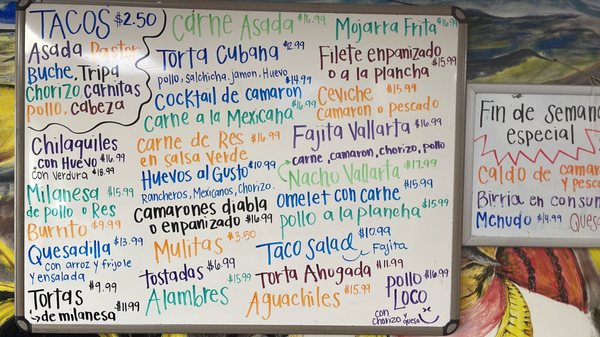 TACOS $2.50
Asada, Pastor
Buche, Tripa
Chorizo, carnitas
pollo, cabeza
Chilaquiles
con Huevo $16.99
con verdura $18.99
Milanesa $15.99
de pollo o Res
Burrito $9.99
Quesadilla $13.99
con arroz y frijole
y ensalada
Tortas $9.99
de milanesa $11.99
Carne Asada $16.99
Torta Cubana
pollo, salchicha, jamon, Huevo
Cocktail de camaron $14.99
Carne a la Mexicana $16.99
Carne de Res $16.99
en salsa verde
Huevos al Gusto $10.99
Rancheros, Mexicanos, Chorizo.
camarones diabla
o empanizado $16.99
Mulitas $3.50
tostadas $16.99
Alambres $15.99
Mojarra Frita $16.99
Filete enpanizado
o a la plancha $15.99
Ceviche $15.99
camaron o pescado
Fajita Vallarta $16.99
carne, camaron, chorizo, pollo
Nacho Vallarta $17.99
omelet con carne $15.99
pollo a la plancha $15.99
Taco Salad $10.99
Fajita
Torta Ahogada $11.99
Aguachiles $15.99
pollo $16.99
LOCO
con
chorizo y queso
Fin de seman
especial
caldo de camar
y pesc
Birria en consum
Menudo $14.99 Ques